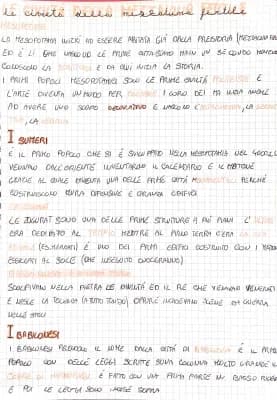 le civiltà della mezzaluna fertile
LA MESOPOTAMIA INIZIÒ AD ESSERE ABITATA GIÀ DALLA PREISTORIA
ED È LÌ CHE NASCONO LE PRIME CITTÀ MAN
COLOSCONO LA SCRITTURA E DA QUI INIZIA LA STORIA.
I PRIMI POPOLI MESOPOTAMICI SONO LE PRIME CIVILTÀ
L'ARTE DIVENTA UN MODO PER I LORO DEI MA INIZIA ANCHE
AD AVERE UNO SCOPO DECORATIVO E NASCONO L'ASTRONOMIA, LA
I SUMERI
È IL PRIMO POPOLO CHE SI È SVILUPPATO NELLA MESOPOTAMIA NEL
VENIVANO DALL'ORIENTE INVENTARONO IL CALENDARIO E IL MATTONE
GRAZIE AL QUALE DIVENTA UNA DELLE PRIME CITTÀ MONUMENTALI PERCHÉ
COSTRUISCONO MURA DIFENSIVE E GRANDI EDIFICI
LE ZIGGURAT SONO UNA DELLE PRIME STRUTTURE A PIÙ PIANI
ERA DEDICATO AL TEMPIO MENTRE AL PIANO TERRA C'ERA LA
È UNO DEI PRIMI EDIFICI COSTRUITO CON I
ESSICCATI AL SOLE
SCOLPIVANO NELLA PIETRA LE DIVINITÀ ED IL RE CHE VENIVANO VENERATI
E NESCE LA SCULTURA (A TUTTO TONDO) OPPURE INCIDEVANO SCENE DI GUERRA
NELLE STELI
I BABILONESI
I BABILONESI PRENDONO IL NOME DALLA CITTÀ DI BABILONIA E IL PRIMO
POPOLO CON DELLE LEGGI SCRITTE SU UNA COLONNA MOLTO GRANDE IL
CODICE DI HAMMURABI È FATTO CON UNA PRIMA PARTE IN BASSO RILIEVO
E POI LE LEGGI SONO INCISE SOPRA